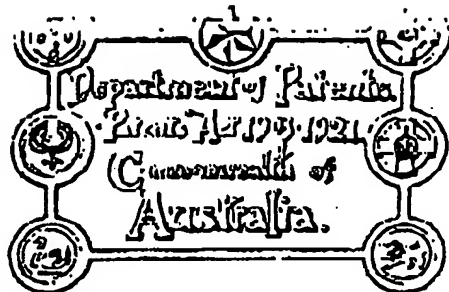 Department of Patents
Patents Act 1903-1921
Commonwealth of
Australia.